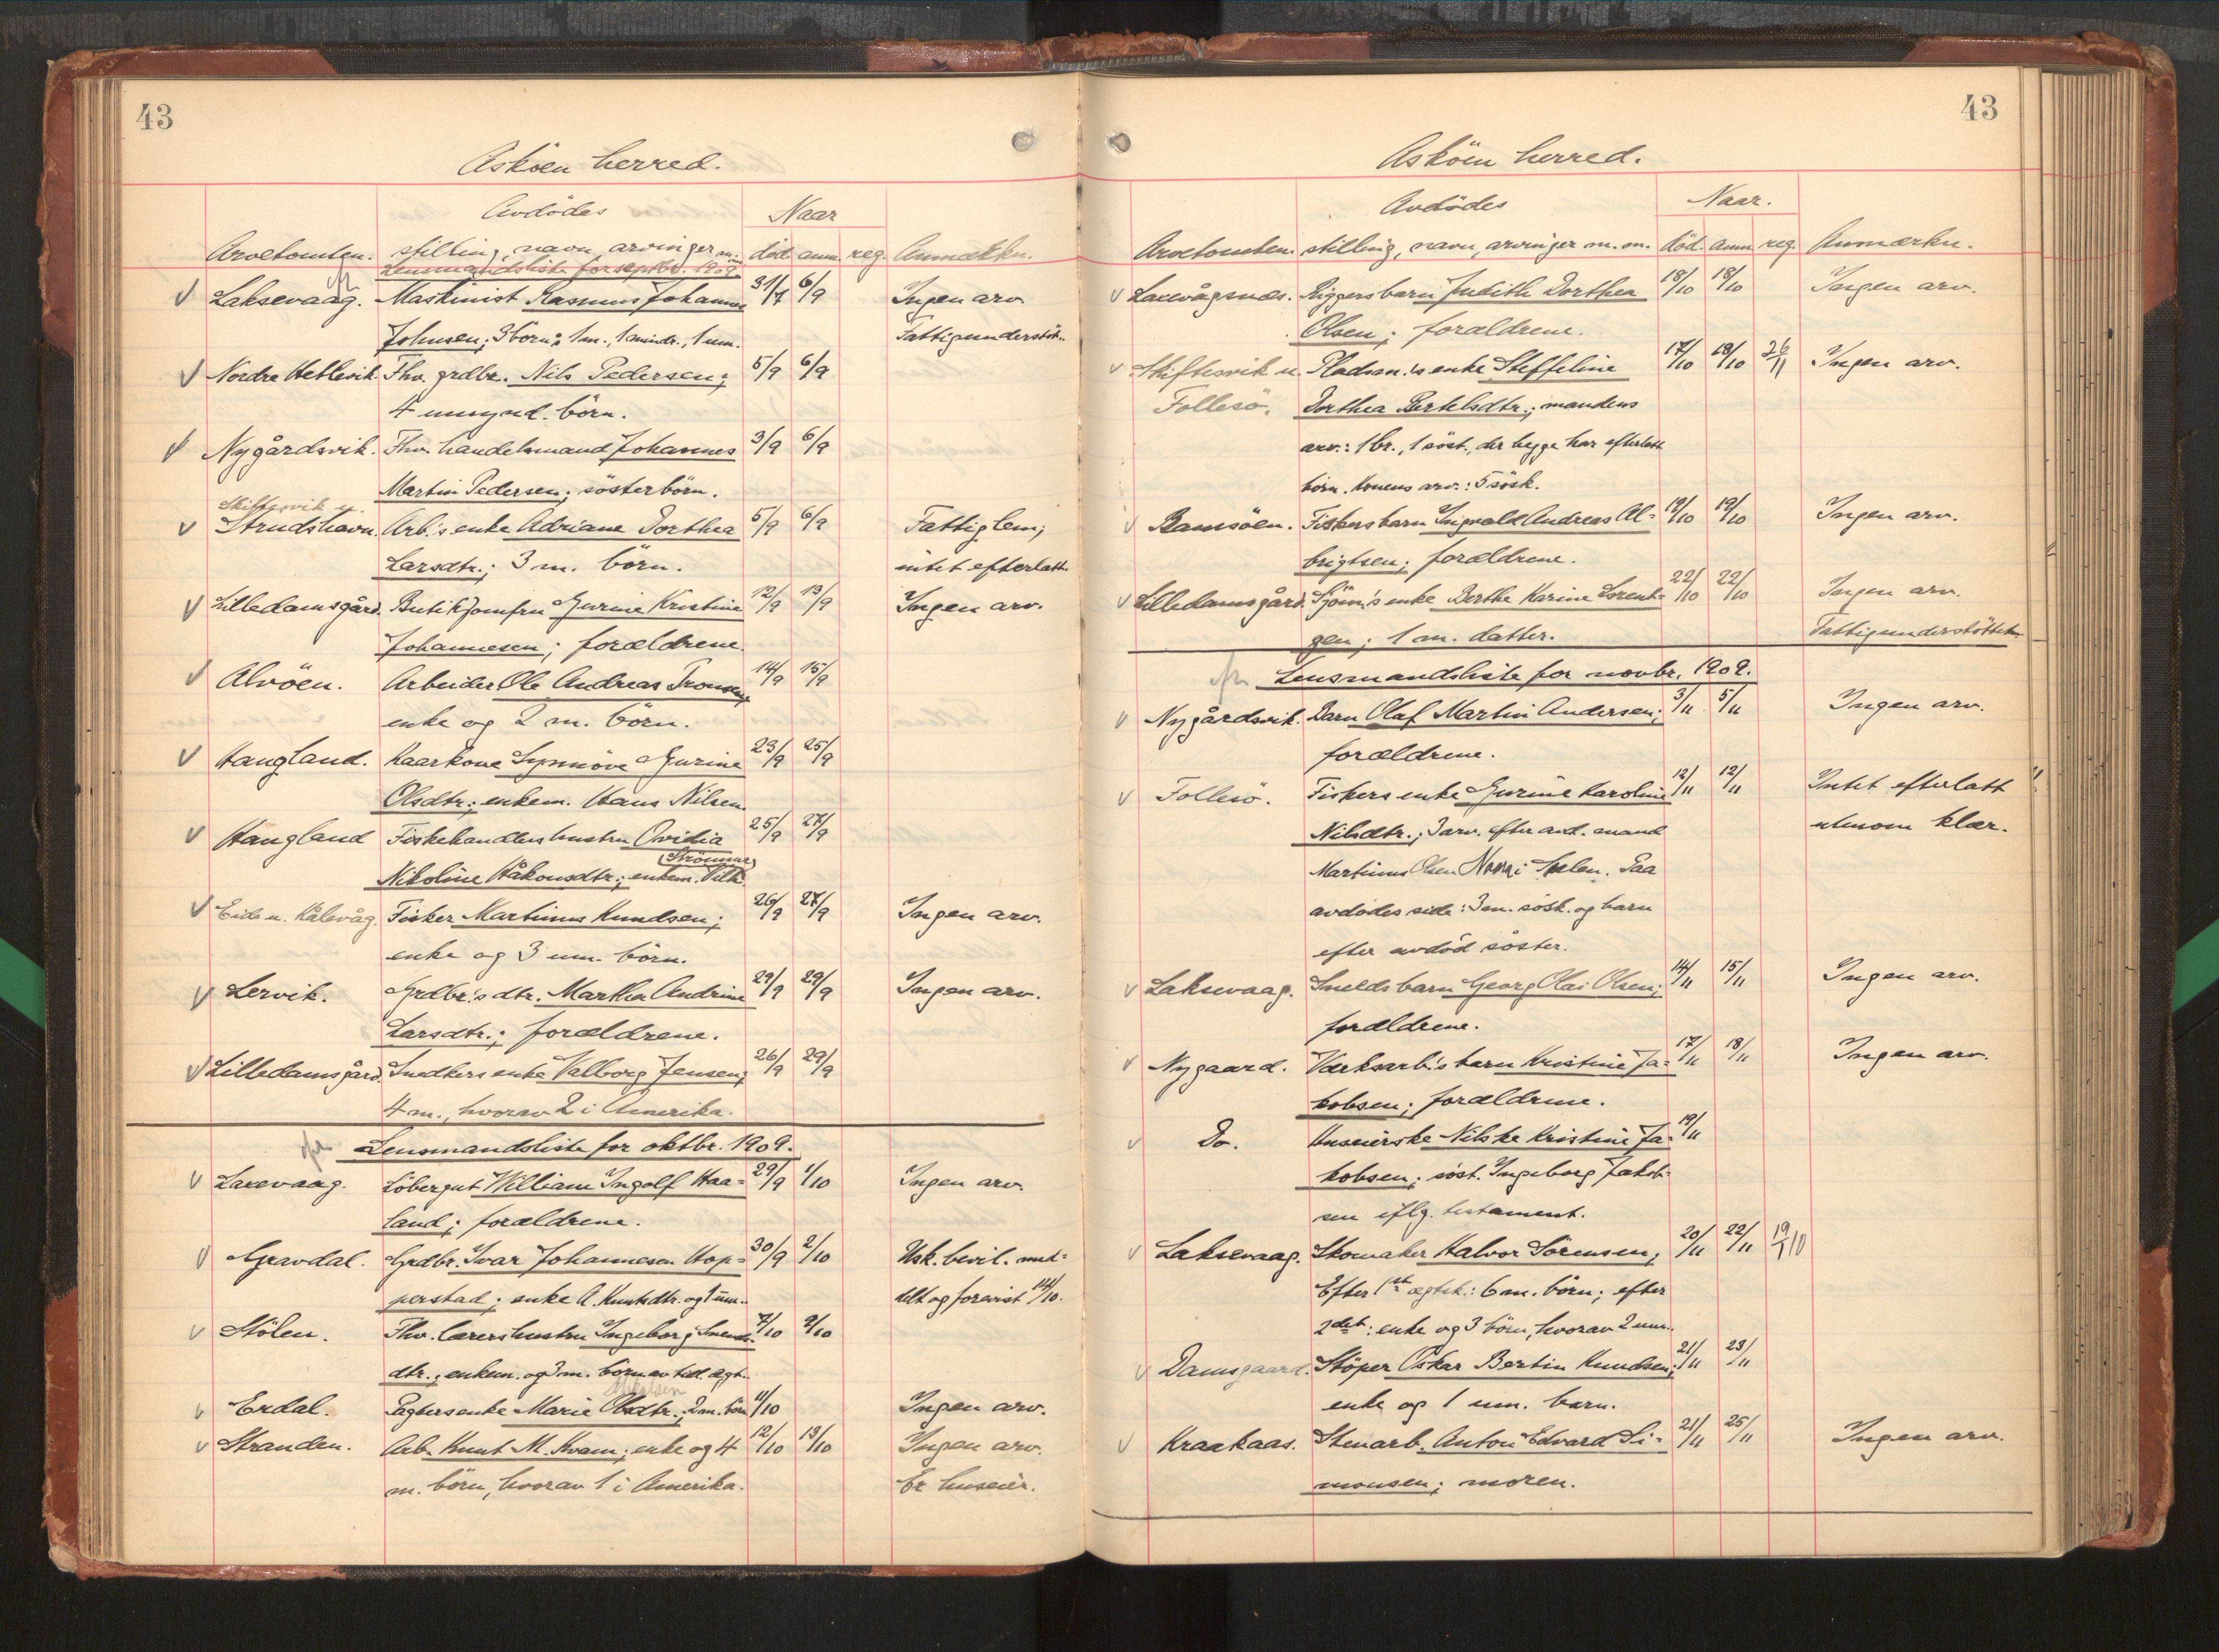 43
Asköen herred.
Avdödes
Naar
Arvetomten. stilling, navn, arvinger m. m. död anm. reg. Anmerkn.
Lensmandsliste for septbr. 1909.
Laksevaag. Maskinist Rasmus Johannes 31/7 6/9 Ingen arv.
Johnsen; 3 börn: 1 m., 1 mindr., 1 um. Fattigunderstöt.
Nordre Hetlevik. Fhv. grdbr. Nils Pedersen; 5/9 6/9
4 umynd. börn.
Nygårdsvik. Fhv. handelsmand Johannes 3/9 6/9
Martin Pedersen; sösterbörn.
Skiftesvik u.
Strudshavn. Arb.'s enke Adriane Dorthea 5/9 6/9 Fattiglem;
Larsdtr.; 3 m. börn. intet efterlatt.
Lilledamsgård. Butikjomfru Gurine Kristine 12/9 13/9 Ingen arv.
Johannesen; forældrene.
Alvöen. Arbeider Ole Andreas Tronsen; 14/9 15/9
enke og 2 m. börn.
Haugland. Kaarkone Synnöve Gurine 23/9 25/9
Olsdtr.; enkem. Hans Nilsen.
Haugland Fiskehandlers hustru Ovidia 25/9 27/9
(Strömmer)
Nikoline Håkonsdtr.; enkem. Vilh.
Eide u. Kålevåg. Fisker Martinus Knudsen; 26/9 27/9 Ingen arv.
enke og 3 um. börn.
Lervik. Grdbr.'s dtr. Martha Andrine 29/9 29/9 Ingen arv.
Larsdtr.; forældrene.
Lilledamsgård. Snedkers enke Valborg Jensen; 26/9 29/9
4 m., hvorav 2 i Amerika.
Lensmandsliste for oktbr. 1909.
Laxevaag. Löbergut William Ingolf Haa= 29/9 1/10 Ingen arv.
land; forældrene.
Gravdal. Grdbr. Ivar Johannesen Hop= 30/9 2/10 Usk. bevil. med=
perstad; enke A. Knutsdtr. og 1 um. delt og forevist 14/10.
Stölen. Fhv. lærers hustru Ingeborg Svends= 7/10 9/10
dtr.; enkem. og 3 m. börn av tidl. ægt.
Mikalsen
Erdal. Pagters enke Marie Olsdtr.; 2 m. börn 11/10 Ingen arv.
Stranden. Arb. Knut M. Kvam; enke og 4 12/10 13/10 Ingen arv.
m. börn, hvorav 1 i Amerika. Er huseier.
43
Asköen herred.
Avdödes
Naar.
Arvetomten. stilling, navn, arvinger m. m. död. anm. reg. Anmærkn.
Laxevågsnes. Riggers barn Judith Dorthea 18/10 18/10 Ingen arv.
Olsen; forældrene.
Skiftesvik u. Pladsm.'s enke Steffeline 17/10 18/10 26/11 Ingen arv.
Follesö. Dorthea Bertelsdtr.; mandens
arv.: 1 br., 1 söst., der begge har efterlatt
börn. konens arv.: 5 sösk.
Ramsöen. Fiskers barn Ingvald Andreas Al= 19/10 19/10 Ingen arv.
brigtsen; forældrene.
Lilledamsgård. Sjöm.'s enke Berthe Karine Lorent= 22/10 22/10 Ingen arv.
zen; 1 m. datter. Fattigunderstöttet.
Lensmandsliste for novbr. 1909.
Nygårdsvik. Barn Olaf Martin Andersen; 3/11 5/11 Ingen arv.
forældrene.
Follesö. Fiskers enke Gurine Karoline 12/11 12/11 Intet efterlatt
Nilsdtr.; 3 arv. efter avd. mand utenom klær.
Martinus Olsen. Paa
avdödes side: 3 m. sösk. og barn
efter avdöd söster.
Laksevaag. Smeds barn Georg Olai Olsen; 14/11 15/11 Ingen arv.
forældrene.
Nygaard. Værksarb.'s barn Kristine Ja= 17/11 18/11 Ingen arv.
kobsen; forældrene.
Do. Huseierske Nilske Kristine Ja= 19/11
kobsen; söst. Ingeborg Jakob=
sen iflg. testament.
Laksevaag. Skomaker Halvor Sörensen; 20/11 22/11 19/1 10
Efter 1ste ægtsk.: 6 m. börn; efter
2det: enke og 3 börn, hvorav 2 um.
Damsgaard. Stöper Oskar Bertin Knudsen; 21/11 23/11
enke og 1 um. barn.
Kraakaas. Stenarb. Anton Edvard Si= 21/11 25/11 Ingen arv.
monsen; moren.